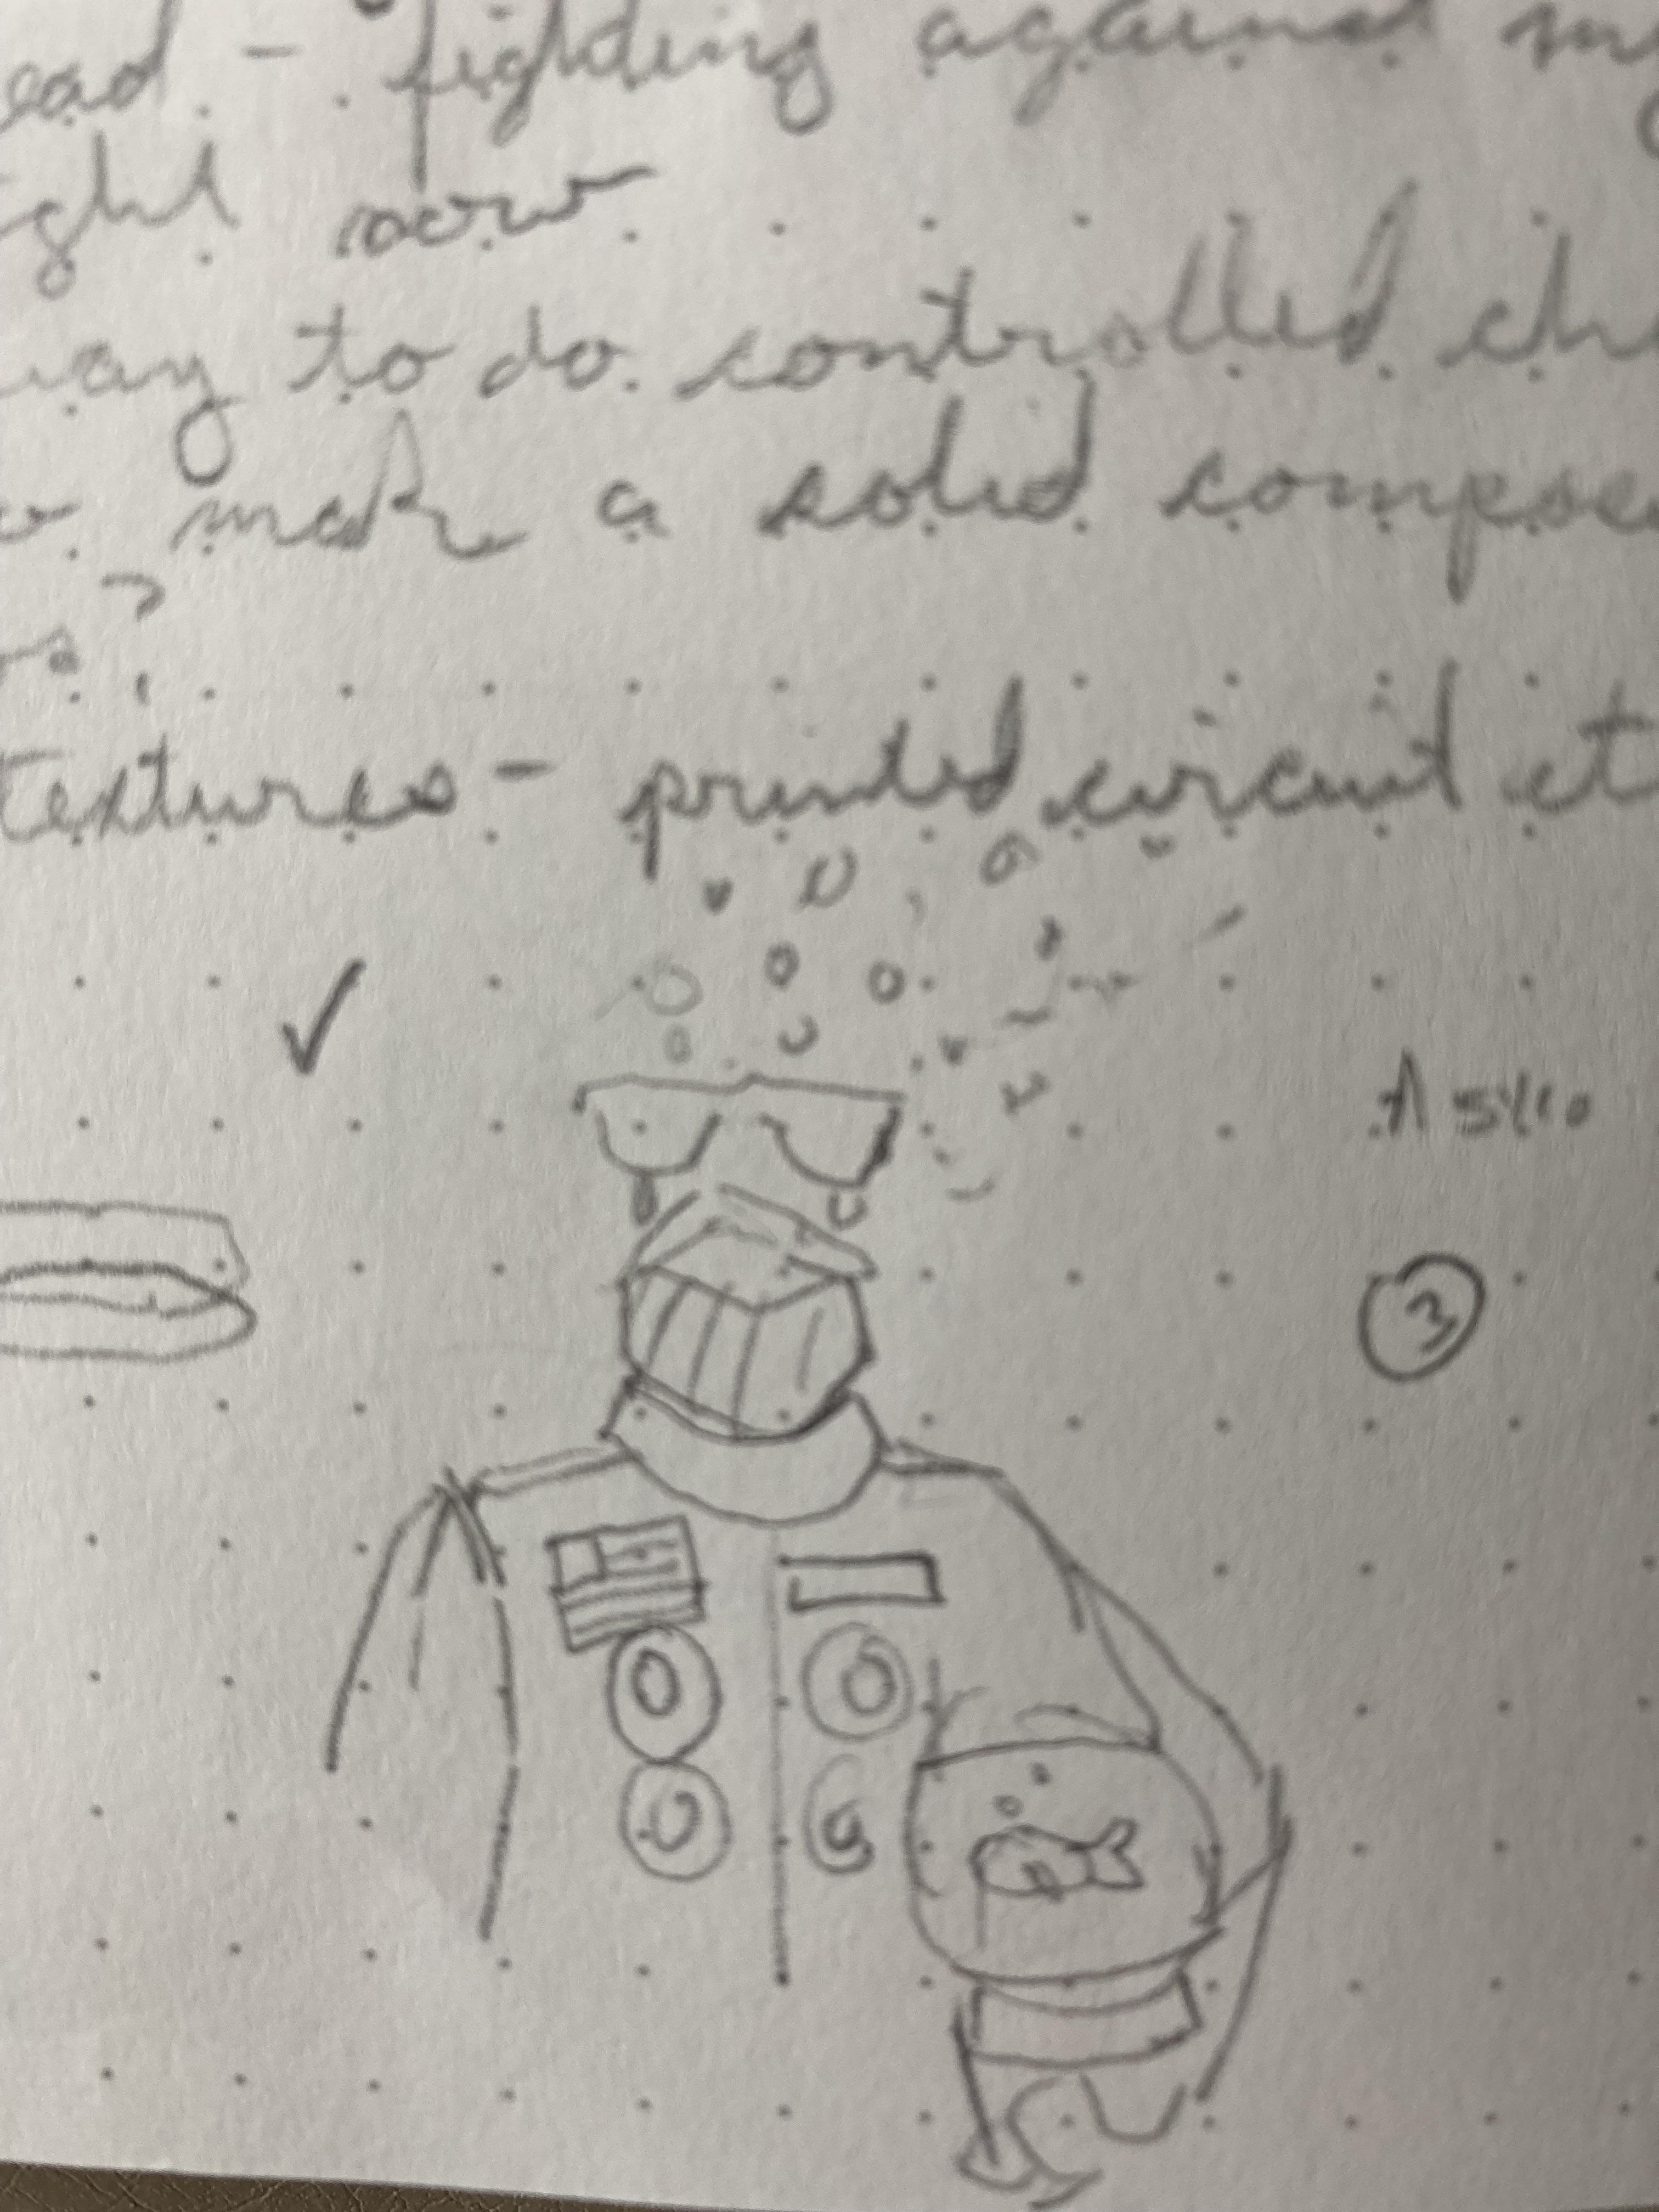 ead - fighting against my
ight now
way to do controlled ch
make a solid compose
?
textures - printed circuit et
3